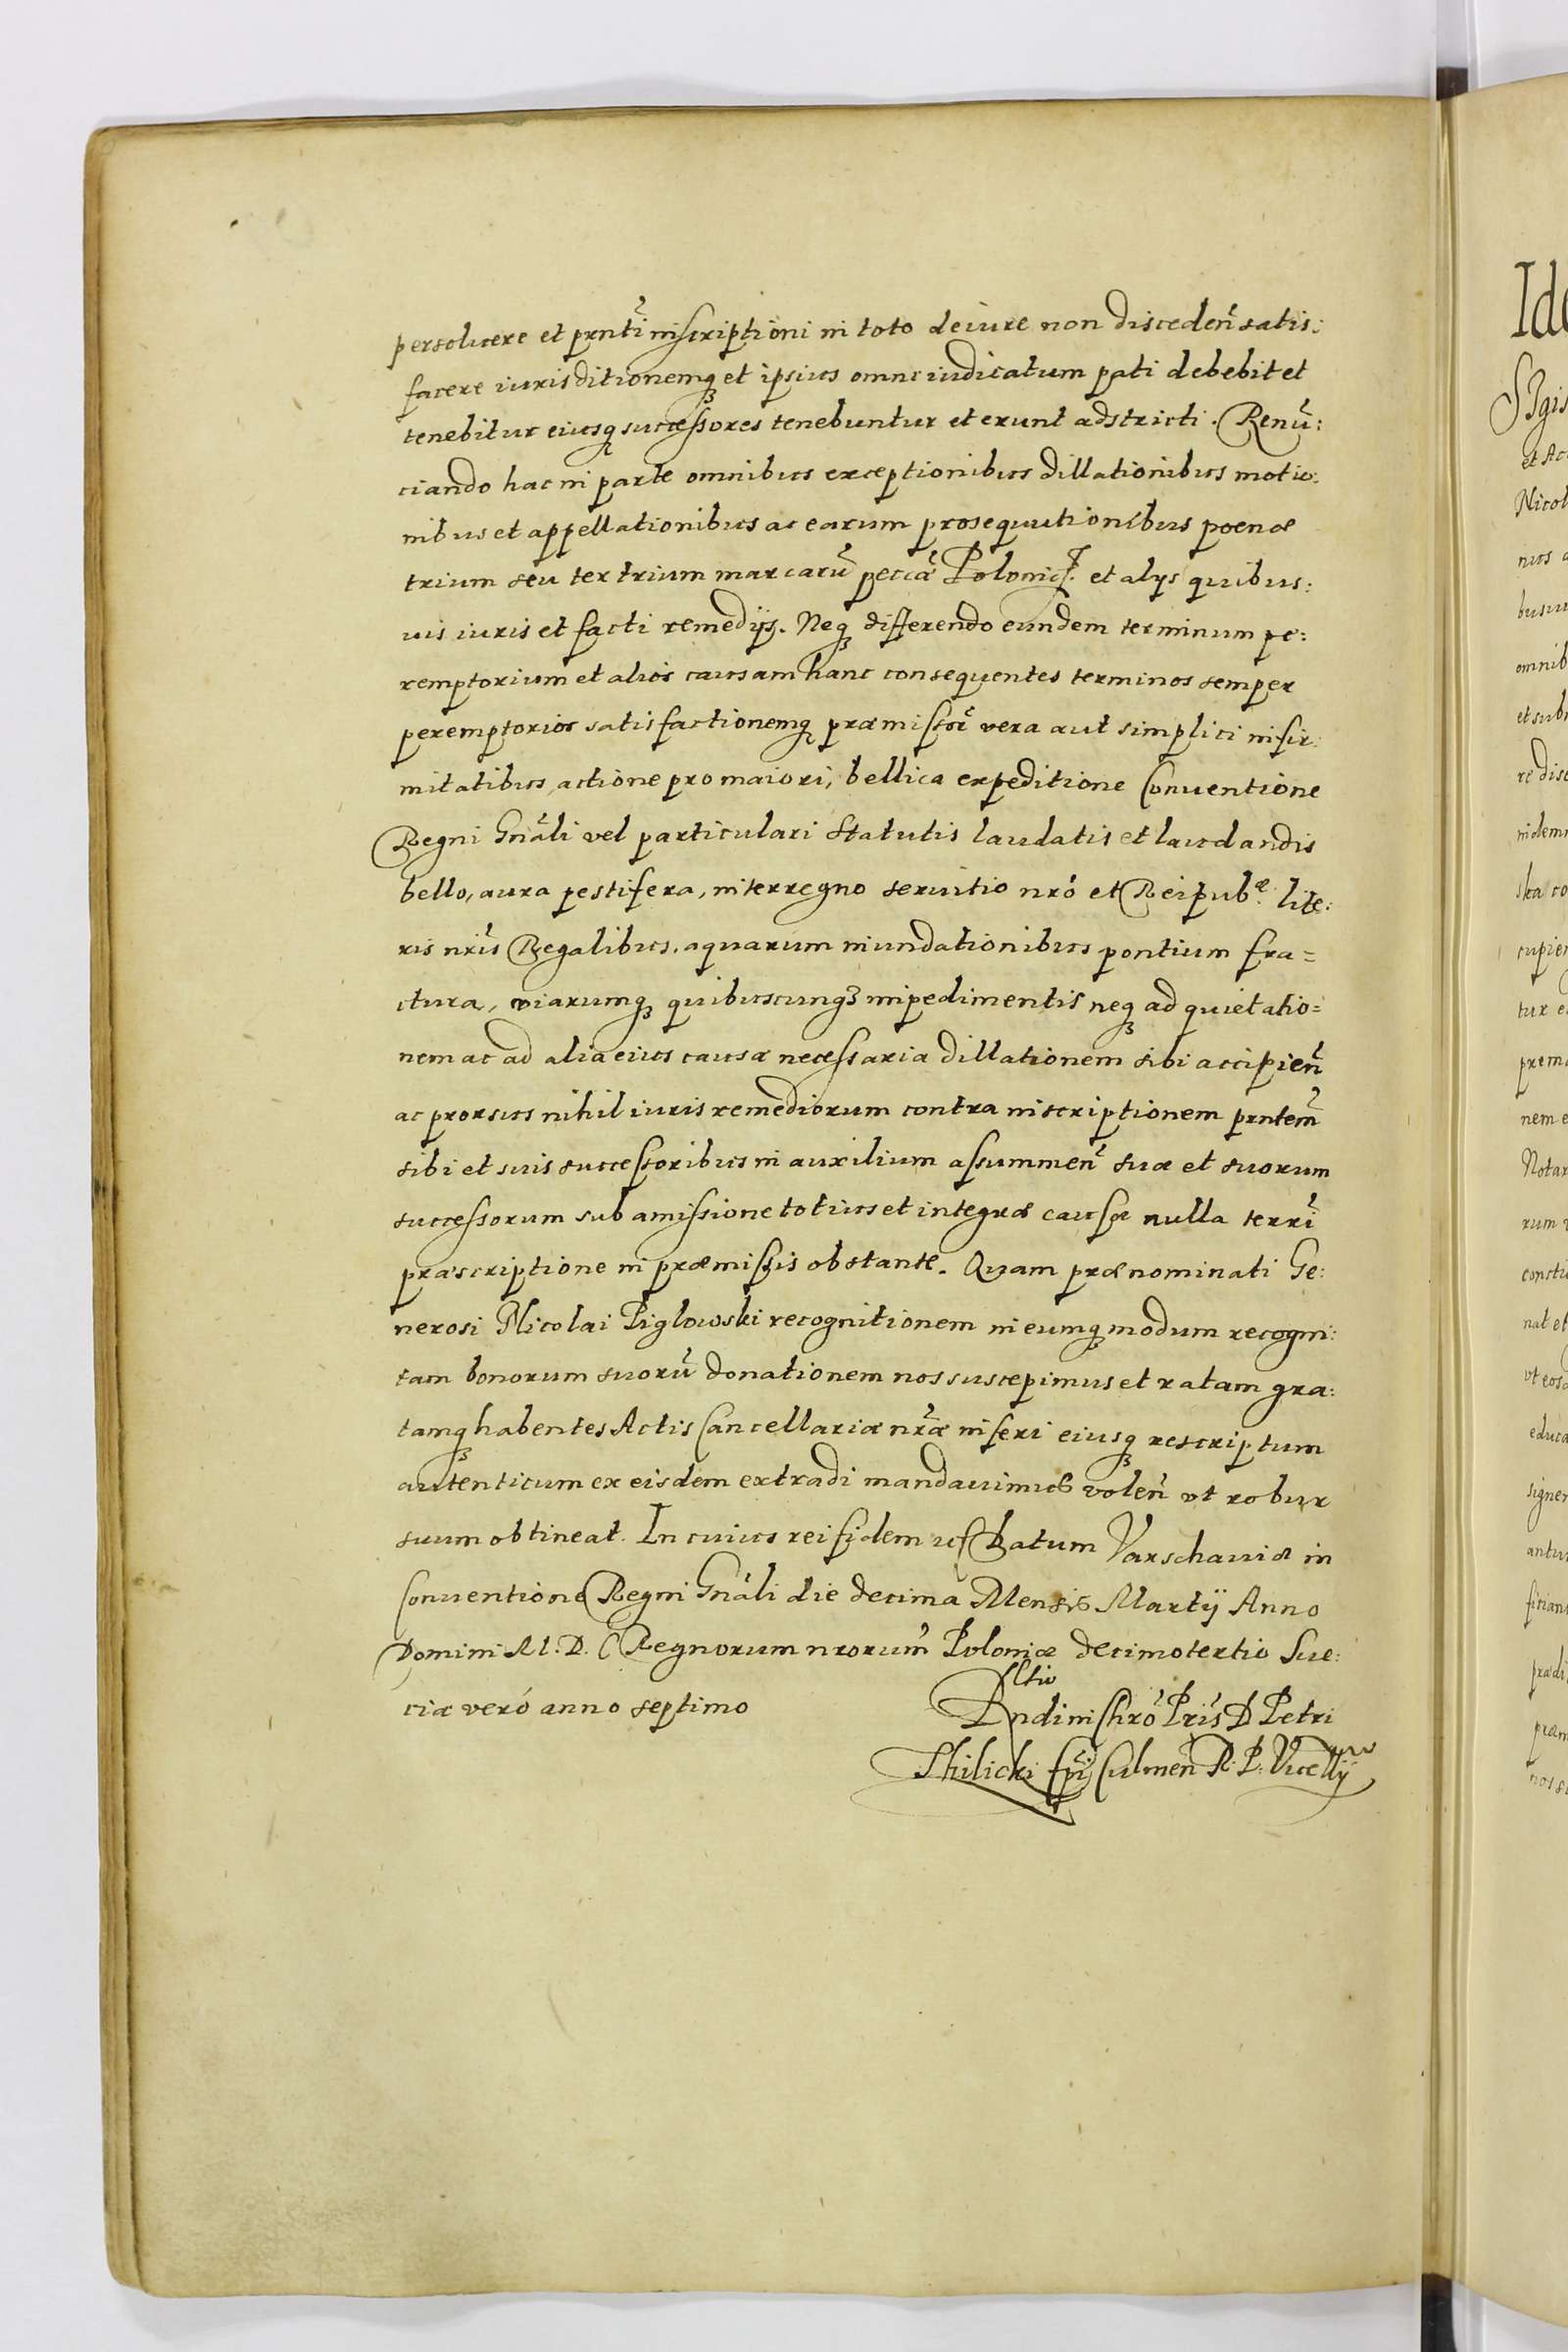 persoluere et prnti inscriptioni in toto de iure non disceden̄ satis:
facere iurisditionemq̃ et ipsius omne iudicatum pati debebit et
tenebitur eiusq̃ successores tenebuntur et erunt adstricti. Renū:
ciando hac in parte omnibus exceptionibus dillationibus motio:
nibus et appellationibus ac earum prosequutionibus poenæ
trium seu ter trium marcarū peccæ Polonic. et alys quibus:
uis iuris et facti remedijs. Neq̃ differendo eundem terminum pe:
remptorium et alios causam hanc consequentes terminos semper
peremptorios satisfactionemq̃ præmissor̄ vera aut simplici infir:
mitatibus, actione pro maiori, bellica expeditione Conuentione
Regni Gnāli vel particulari Statutis laudatis et laudandis
bello, aura pestifera, interregno seruitio nr̄o et Reipub.æ lite:
ris nr̄is Regalibus, aquarum inundationibus pontium fra=
ctura, viarumq̃ quibuscunq̃ impedimentis neq̃ ad quietatio=
nem ac ad alia eius causæ necessaria dillationem sibi accipien̄
ac prorsus nihil iuris remediorum contra inscriptionem prntem̄
sibi et suis successoribus in auxilium assummen̄ suæ et suorum
successorum sub amissione totius et integræ causæ nulla terrī
præscriptione in præmissis obstante. Quam prænominati Ge:
nerosi Nicolai Piglowski recognitionem in eumq̃ modum recogni:
tam bonorum suorū donationem nos suscepimus et ratam gra:
tamq̃ habentes Actis Cancellariæ nr̄æ inseri eiusq̃ rescriptum
autenticum ex eisdem extradi mandauimus volen̄ vt robur
suum obtineat. In cuius rei fidem Datum Varschauiæ in
Conuentione Regni Gnāli die decima Mensis Martij Anno
Domini M. D. C Regnorum nrorum̄ Poloniæ decimotertio Sue:
ciæ verò anno septimo
Rndi in Chrō Pr̄is D Petri
Thilicki Epī Culmen̄ R. P. Vicellij